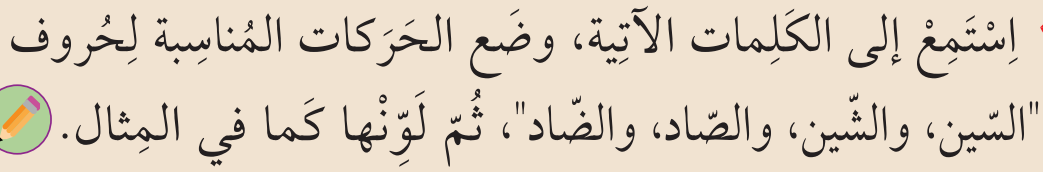 اِسْتَمِعْ إلى الكَلِمات الآتِية، وضَع الحَرَكات المُناسِبة لِحُروف
"السّين، والشّين، والصّاد، والضّاد"، ثُمّ لَوِّنْها كَما في المِثال.